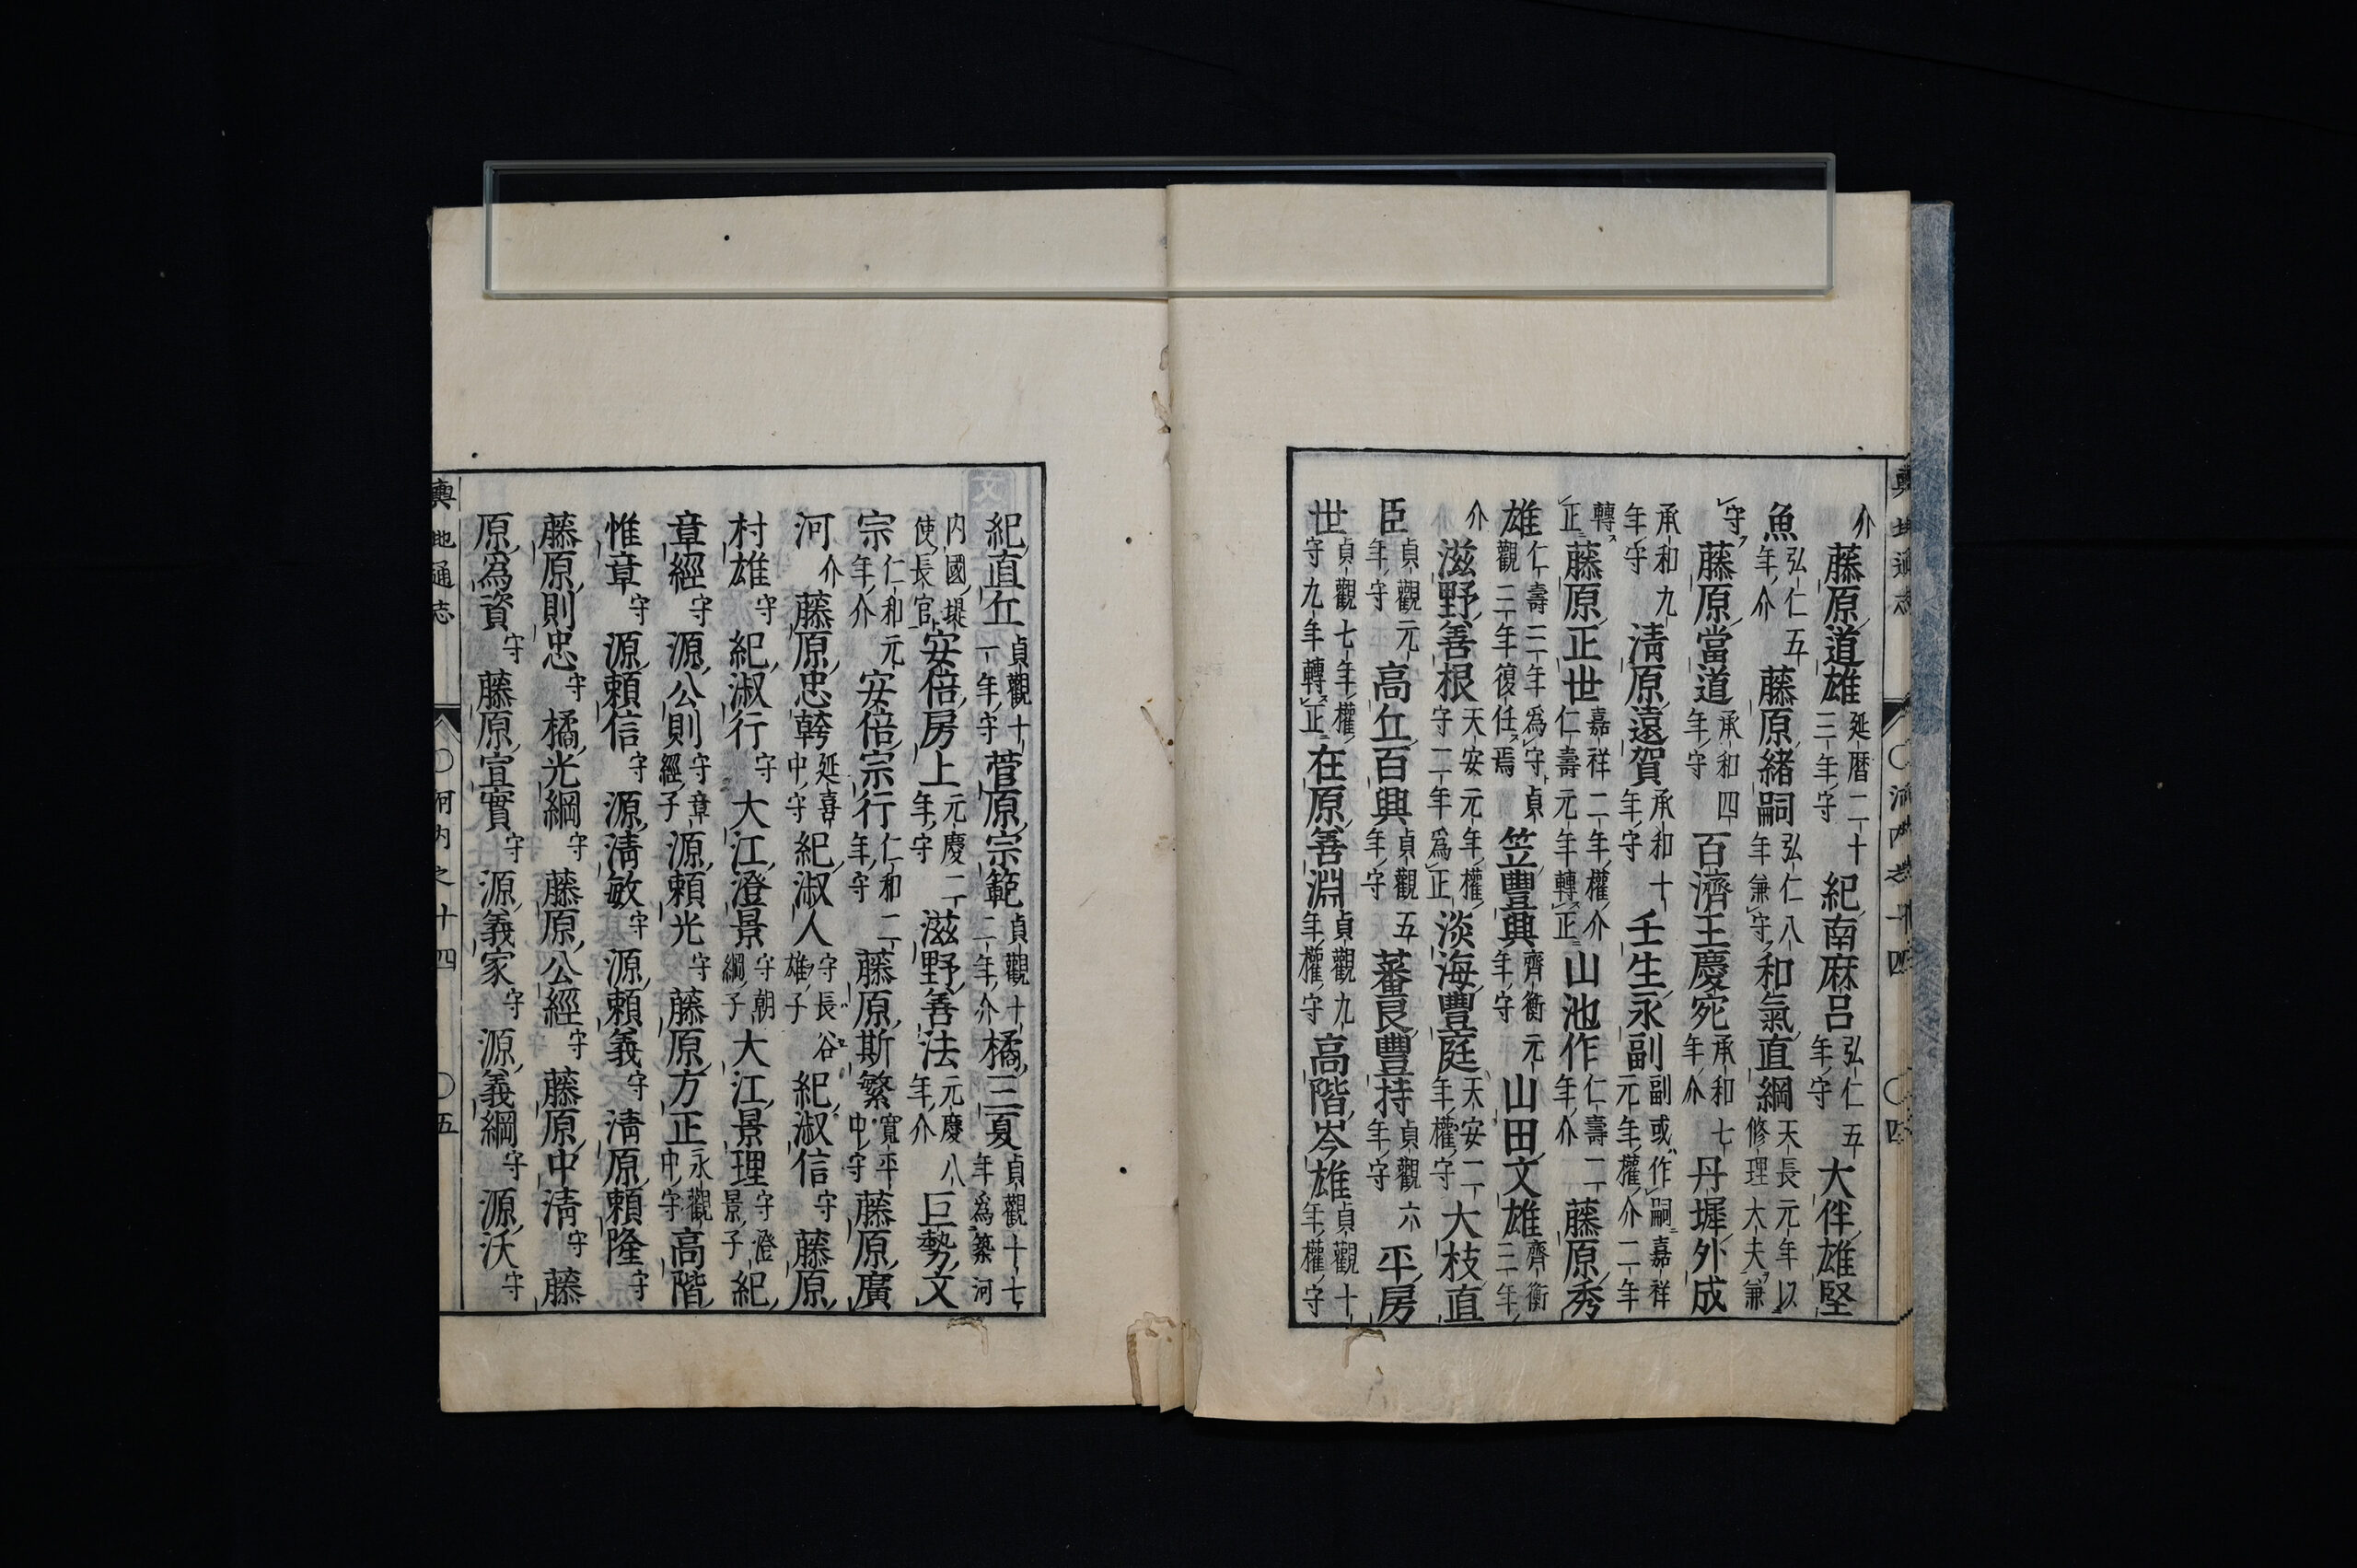 介藤原道雄延暦二十三年守紀南麻呂弘仁五年守大伴雄堅
魚弘仁五年介藤原緒嗣弘仁八年兼守和氣直綱天長元年以修理大夫兼
守藤原當道承和四年守百濟王慶宛承和七年介丹墀外成
承和九年守淸原遠賀承和十年守壬生永副副或作嗣嘉祥元年權介二年
轉正藤原正世嘉祥二年權介仁壽元年轉正山池作仁壽二年介藤原秀
雄仁壽三年爲守貞觀三年復任焉笠豐興齊衡元年守山田文雄齊衡三年
介滋野善根天安元年權守二年爲正淡海豐庭天安二年權守大枝直
臣貞觀元年守高丘百興貞觀五年守蕃良豐持貞觀六年守平房
世貞觀七年權守九年轉正在原善淵貞觀九年權守高階岑雄貞觀十年權守
輿地通志
河內之十四
四
紀直丘貞觀十一年守菅原宗範貞觀十二年介橘三夏貞觀十七年爲築河
内國堤使長官安倍房上元慶二年守滋野善法元慶八年介巨勢文
宗仁和元年介安倍宗行仁和二年守藤原斯繁寬平中守藤原廣
河介藤原忠幹延喜中守紀淑人守長谷雄子紀淑信守藤原
村雄守紀淑行守大江澄景守朝綱子大江景理守澄景子紀
章經守源公則守章經子源賴光守藤原方正永觀中守高階
惟章守源賴信守源淸敏守源賴義守淸原賴隆守
藤原則忠守橘光綱守藤原公經守藤原中淸守藤
原爲資守藤原宣實守源義家守源義綱守源沃守
輿地通志
河内之十四
五